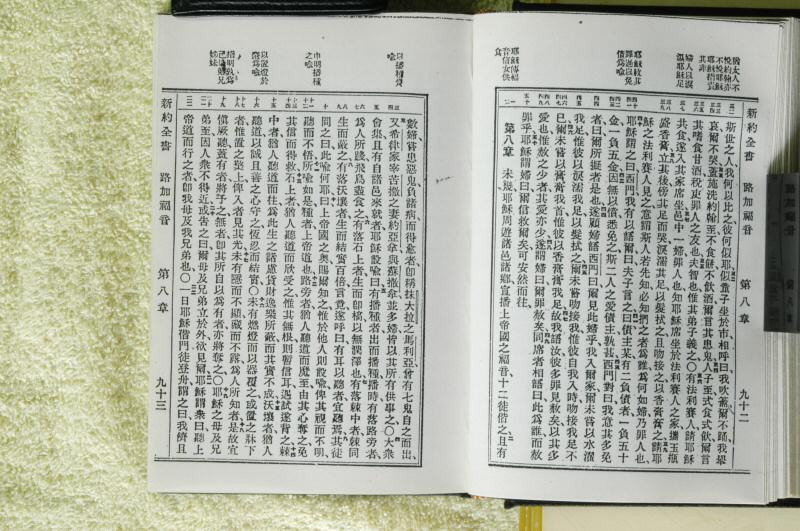 猶太人不
悅約翰亦
不悅耶穌
耶穌指責
其非
婦人以淚
濡耶穌足
耶穌赦其
罪遂以免
債爲喻
耶穌傳福
音信女供
食
斯世之人、我何以比之、彼何似耶、似童子坐於市、相呼曰、我吹籥、爾不踊、我舉
哀、爾不哭、蓋施洗約翰至、不食餅、不飲酒、爾言其患鬼、人子至、式食式飲、爾言
其嗜食甘酒、稅吏罪人之友也、夫智也、惟其弟子義之、○有法利賽人、請耶穌
共食、遂入其家席坐、邑中一婦、罪人也、知耶穌席坐於法利賽人之家、攜玉瓶
盛香膏、立其後、傍其足而哭、淚濡其足、以髮拭之、且吻接之、以香膏膏之、請耶
穌之法利賽人見之、意謂斯人若先知、必知捫之者爲誰、爲何如婦、乃罪人也、
耶穌謂之曰、西門、我有以語爾、曰、夫子言之、曰、債主某、有二負債者、一負五十
金、一負五金、因無以償、悉免之、斯二人之愛債主孰甚、西門對曰、我意其多免
者、曰、爾所擬者是也、遂顧婦語西門曰、爾見此婦乎、我入爾家、爾未嘗以水濯
我足、惟彼以淚濡我足、以髮拭之、爾未嘗吻接我、惟彼自我入時、吻接我足不
已、爾未嘗以膏膏我首、惟彼以香膏膏我足、故我語汝、彼多罪見赦矣、以其多
愛也、惟赦之少者、其愛亦少、遂謂婦曰、爾罪赦矣、同席者相語曰、此爲誰、而赦
罪乎、耶穌謂婦曰、爾信救爾矣、可安然而往、
第八章 未幾、耶穌周遊諸邑諸鄉、宣播上帝國之福音、十二徒偕之、且有
路加福音 第八章 九十二
以播種設
之喻
申明播種
之喻
以設燈於
臺爲喻
指明孰爲
己之母兄
姊妹
數婦、嘗患惡鬼負諸病而得愈者、卽稱抹大拉之馬利亞、曾有七鬼自之而出、
又希律家宰苦撒之妻約亞拿、與蘇撒拿、並多婦、皆以其所有供事之、○大衆
會集、且有自諸邑來就者、耶穌設喻曰、有播種者出而播種、播時有落路旁者、
爲人所踐、飛鳥盡食之、有落石上者、生而卽槁、以無潤澤也、有落棘中者、棘同
生而蔽之、有落沃壤者、生而結實百倍、言竟、遂呼曰、有耳以聽者、宜聽焉、其徒
問之曰、此喻何耶、曰、上帝國之奧、賜爾知之、惟於他人則設喻、俾其視而不明、
聽而不悟、所喻如是、種者、上帝道也、路旁者、猶人聽道、而魔至、由其心奪之、免
其信而得救、石上者、猶人聽道而欣受之、惟其無根、則暫信耳、遇試遂背之、棘
中者、猶人聽道而往、爲此生之諸慮貨財逸樂所蔽、而其實不成、沃壤者、猶人
聽道以誠且善之心守之、恆忍而結實、○未有燃燈而以器覆之、或置之牀下
者、惟置之檠上、俾入者見其光、未有隱而不顯、藏而不露、爲人所知者、是故宜
愼厥聽、蓋有者將予之、無者、卽其所自以爲有者、亦將奪之、○耶穌之母及兄
弟至、因人衆不得近、或告之曰、爾母及兄弟立於外、欲見爾、耶穌謂衆曰、聽上
帝道而行之者、卽我母及我兄弟也、○一日、耶穌偕門徒登舟、謂之曰、我儕且
新約全書 路加福音 第八章 九十三